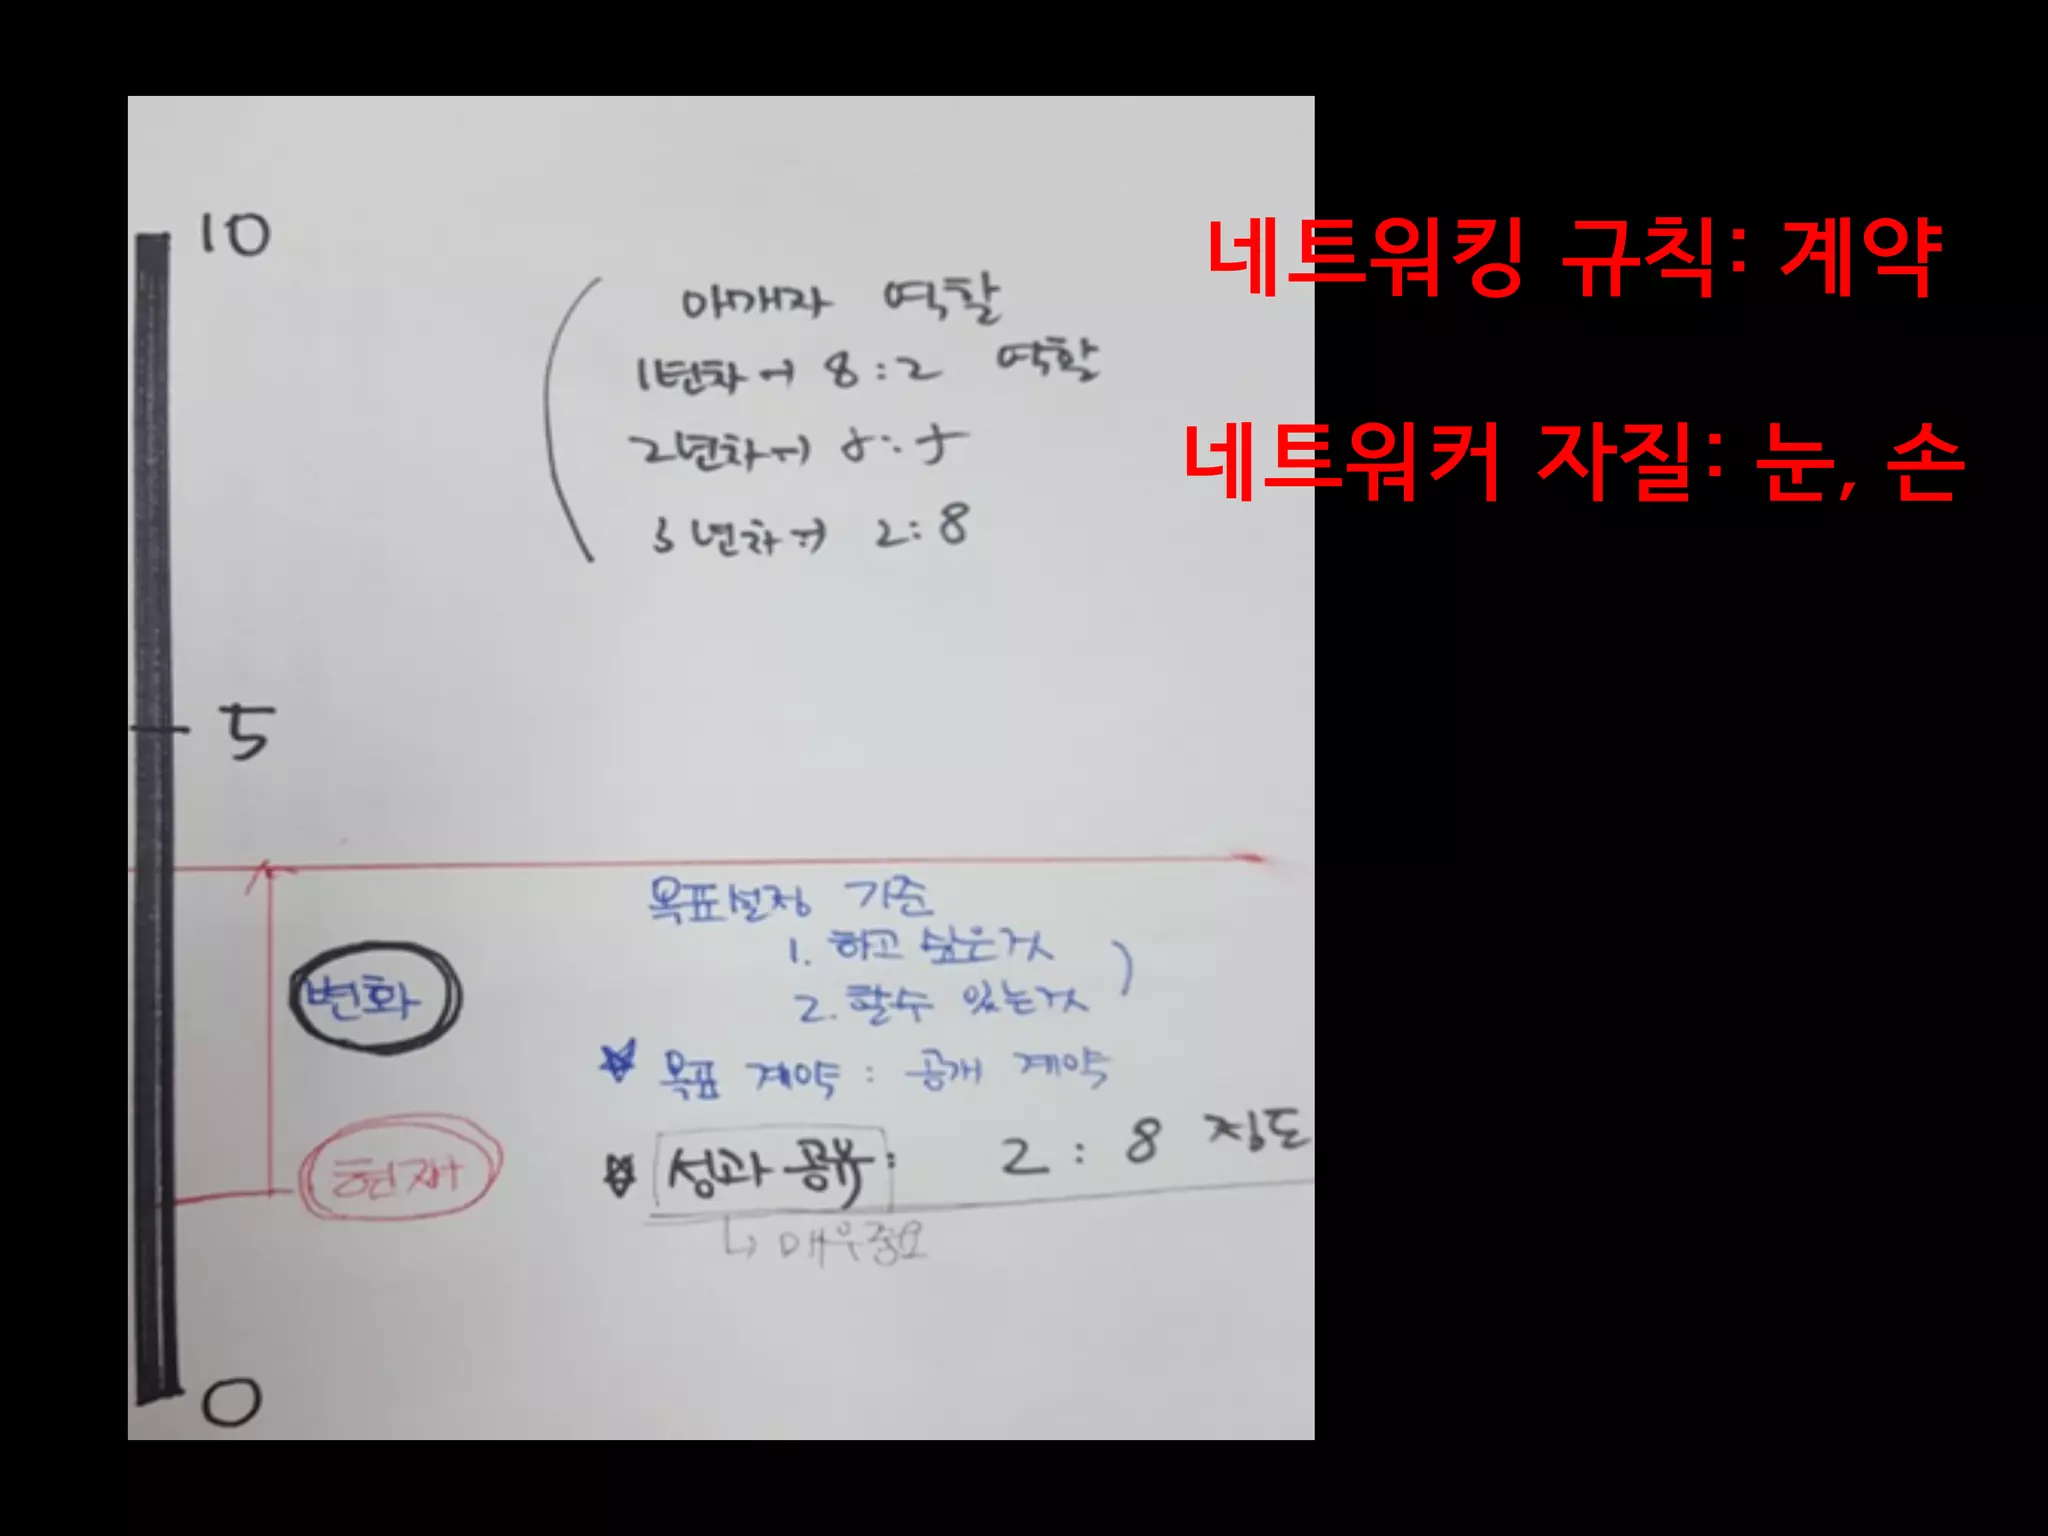 네트워킹 규칙: 계약
네트워커 자질: 눈, 손
10
역할
1년차→ 8:2 역할
2년차→ 5:5
3년차→ 2:8
5
목표설정 기준
1. 하고 싶은것
2. 할수 있는것
변화
목표 계약: 공개 계약
성과 공유: 2:8 정도
현재
↳ 매우중요
0